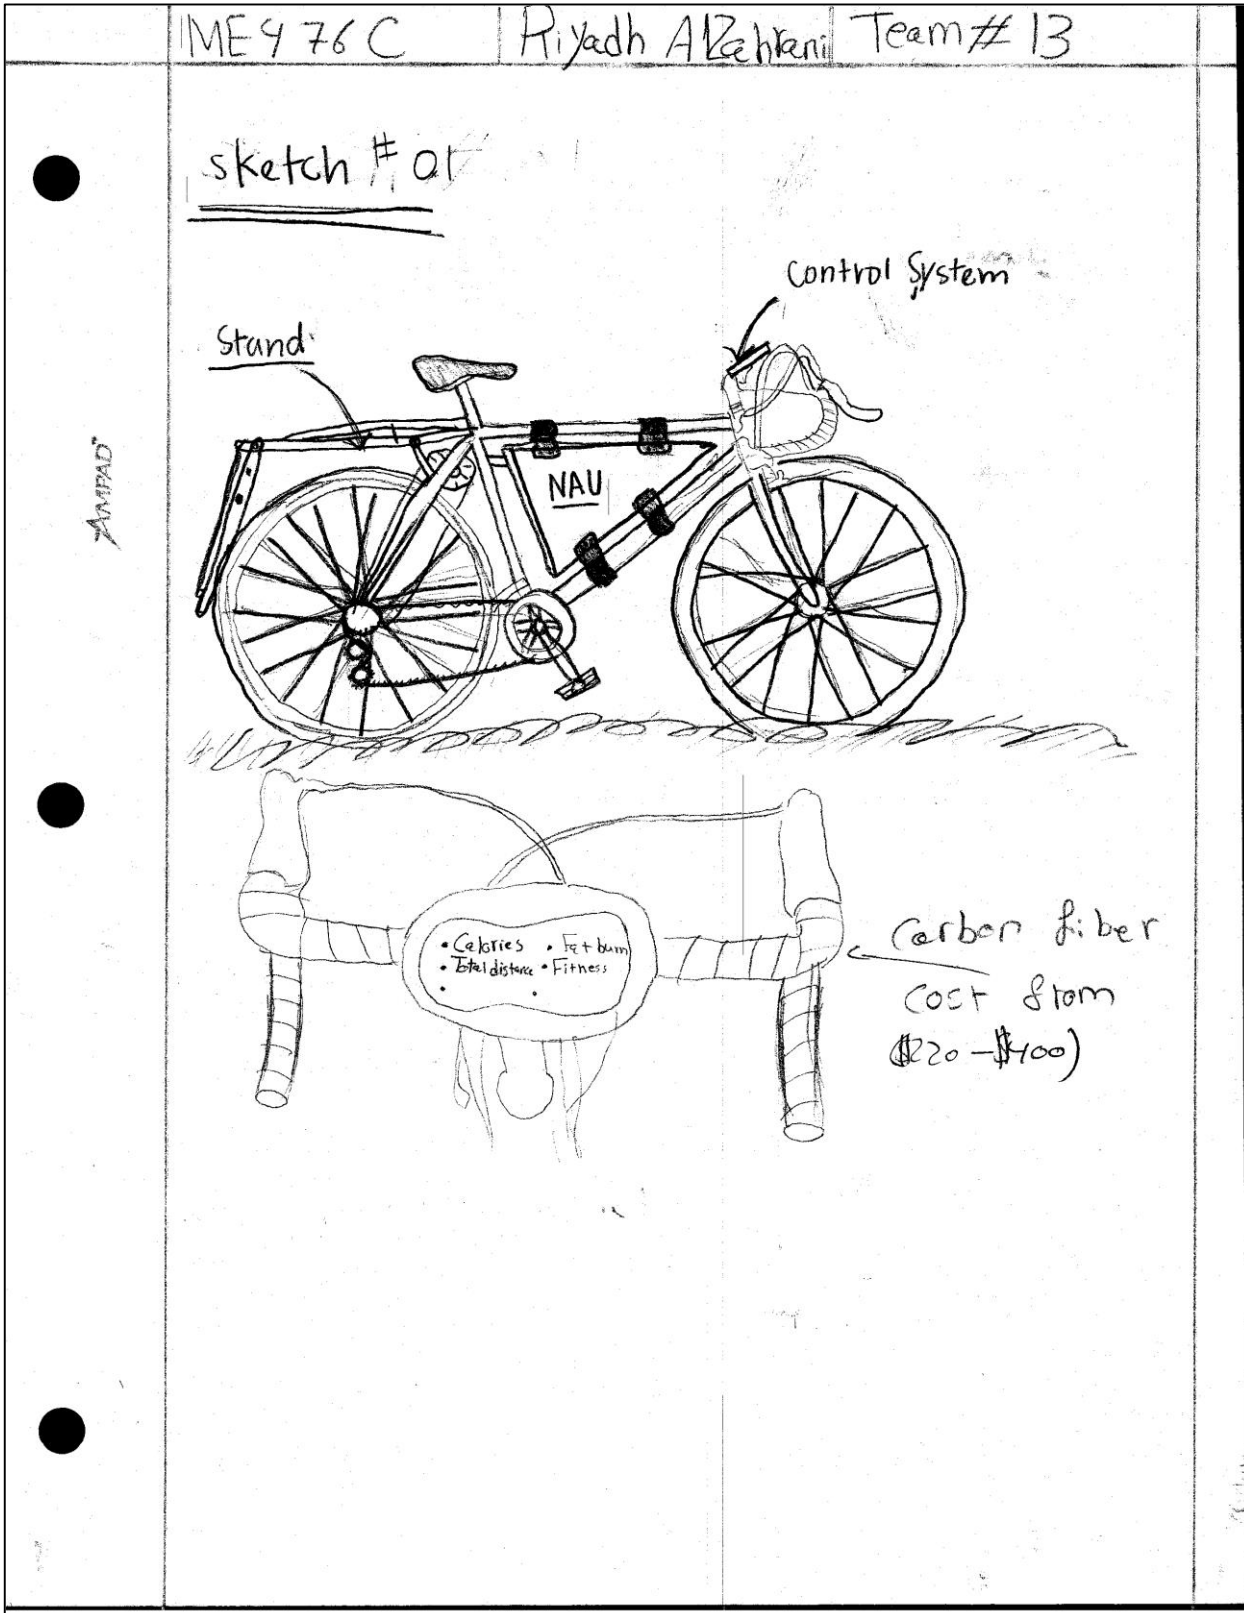 ME476C Riyadh Alzahrani Team # 13
sketch # 01
Control System
Stand
AMPAD
NAU
• Calories • Fat burn
• Total distance • Fitness
• •
Carbon fiber
cost from
$220 - $400)